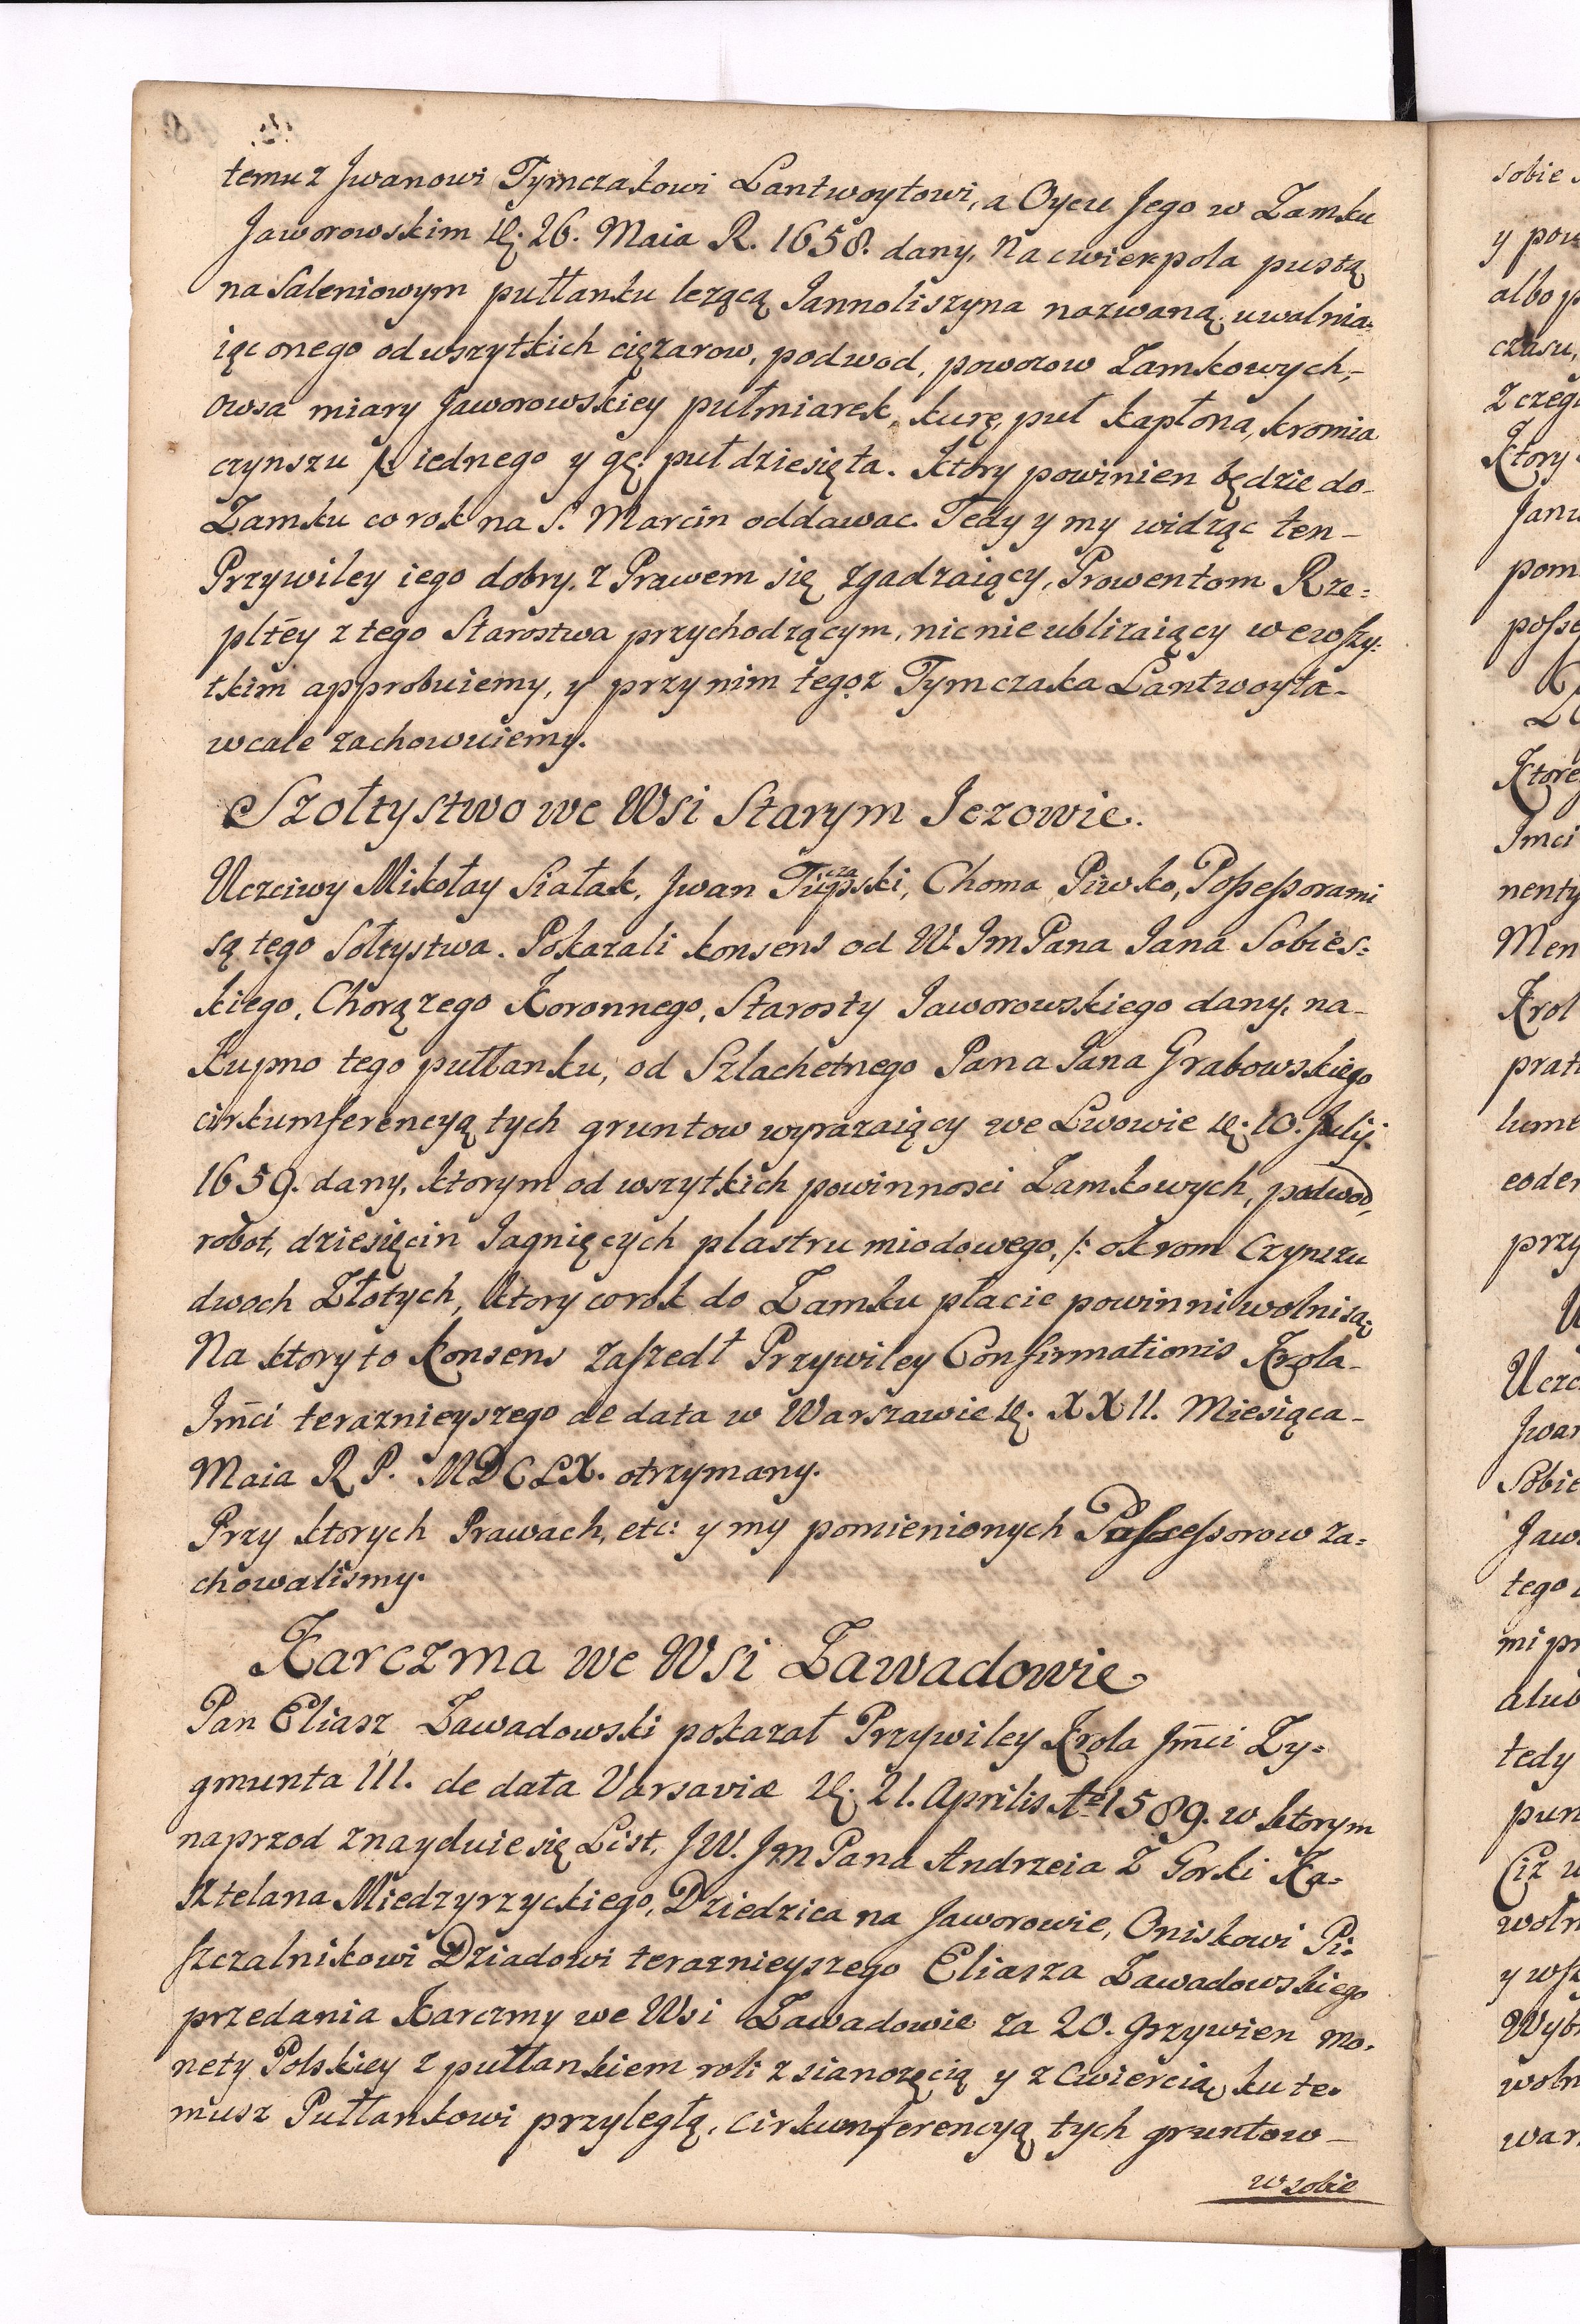 temuz Jwanowi Tymczakowi Lantwoytowi, a Oycu Jego w Zamku
Jaworowskim 26. Maia R. 1658. dany, Na cwierpola pustą
na Saleniowym putłanku lezącą Jannoliszyna nazwaną, uwalnia:
iąc onego od wszytkich cięzarow, podwod, powozow Zamkowych,-
owsa miary Jaworowskiey pułmiarek, kurę, puł kapłona, kromia
czynszu iednego y gę: puł dziesięta. Ktory powinien będzie do-
Zamku co rok na S. Marcin oddawac. Tedy y my widząc ten-
Przywiley iego dobry, z Prawem się zgadzaiący, Prowentom Rze:
pltey z tego Starostwa przychodzącym, nic nie ublizaiący we wszy:
tkim approbuiemy, y przy nim tegoz Tymczaka Lantwoyta-
wcale zachowuiemy.
Szołtystwo we Wsi Starym Jezowie.
Uczciwy Mikołay Siałak, Jwan, Choma Piwko, Possessorami
są tego Sołtystwa. Pokazali konsens od W. Jm Pana Jana Sobies:
kiego, Chorązego Koronnego, Starosty Jaworowskiego dany, na-
Kupno tego pułłanku, od Szlachetnego Pana Jana Grabowskiego
cirkumferencyą tych gruntow wyrazaiący we Lwowie 10. Julij.
1659. dany, ktorym od wszytkich powinnosci Zamkowych, podwod,
robot, dziesięcin Jagnięcych plastru miodowego, /: okrom Czynszu
dwoch Złotych, ktory co rok do Zamku płacic powinni wolni są.
Na ktory to Konsens zaszedł Przywiley Confirmationis Krola-
Jmci teraznieyszego de data w Warszawie XXII. Miesiąca-
Maia R P. MDCLX. otrzymany.
Przy ktorych Prawach, etc: y my pomienionych Possessorow za:
chowalismy.
Karczma we Wsi Zawadowie
Pan Eliasz Zawadowski pokazał Przywiley Krola Jmci Zy:
gmunta III. de data Varsaviæ 21. Aprilis Ao 1589. w ktorym
naprzod znayduie się List, JW. Jm Pana Andrzeia z Gorki Ka:
sztelana Miedzyrzyckiego, Dziedzica na Jaworowie, Oniskowi Pi:
szczalnikowi Dziadowi teraznieyszego Eliasza Zawadowskiego
przedania Karczmy we Wsi Zawadowie za 20. grzywien mo:
nety Polskiey z pułłankiem roli z sianozęcią y z cwiercią, ku te:
musz Pułłankowi przyległą, cirkumferencyą tych gruntow-
w sobie